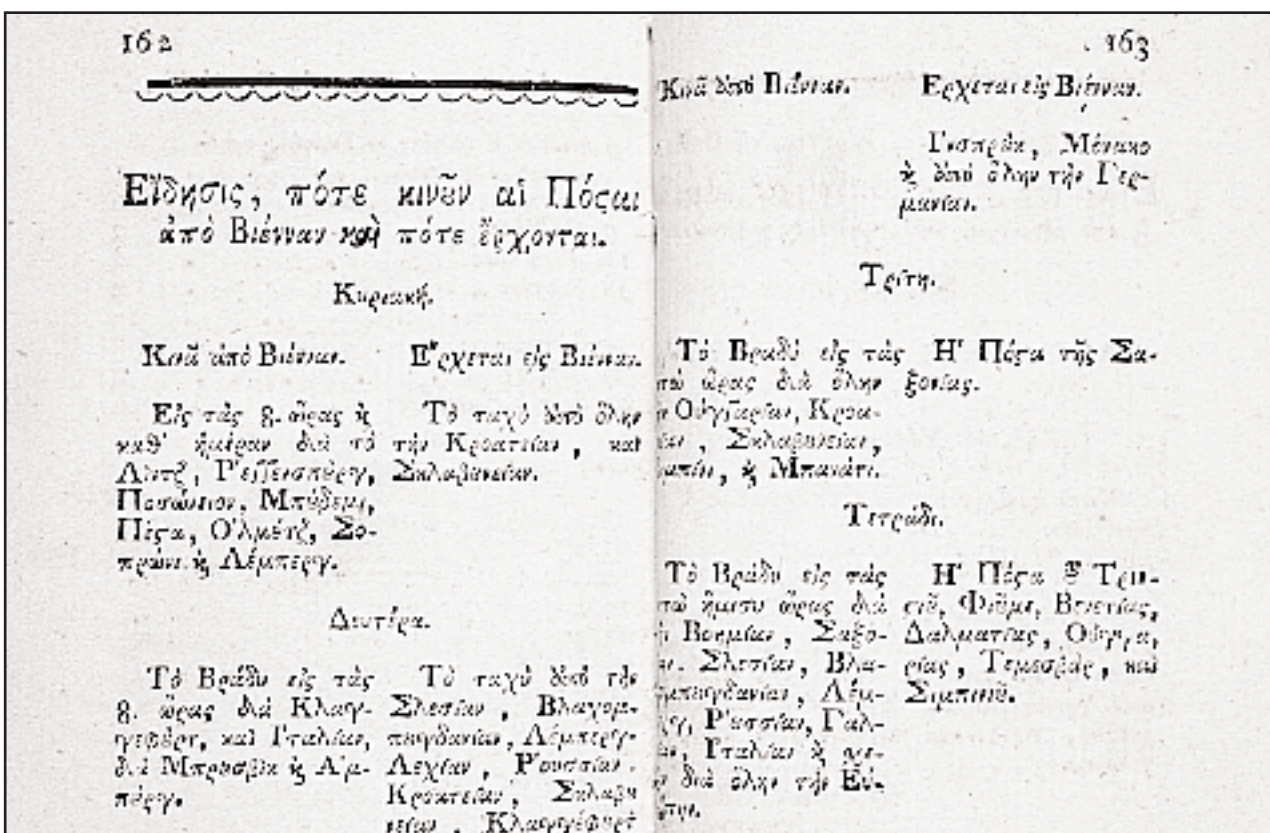 162
Εἴδησις, πότε κινοῦν αἱ Πόςαι
ἀπὸ Βιένναν καὶ πότε ἔρχονται.
Κυριακή.
Κινᾶ ἀπὸ Βιένναν.
Εἰς τὰς 8. ὥρας ϗ
καθ' ἡμέραν διὰ τὸ
Λίντζ, Ῥεγγενσπούργ,
Ποσώνιον, Μπούδεμι,
Πέςα, Ὀλμέτζ, Σο-
πρώνι ϗ Λέμπεργ.
Ἔρχεται εἰς Βιένναν.
Τὸ ταχὺ ἀπὸ ὅλην
τὴν Κροατείαν, καὶ
Σκλαβωνείαν.
Δευτέρα.
Τὸ Βράδυ εἰς τὰς
8. ὥρας διὰ Κλαγ-
γεφούρτ, καὶ Ἰταλίαν,
διὰ Μπρουσβὶκ ϗ Ἀμ-
πούργ.
Τὸ ταχὺ ἀπὸ τὴν
Σλεσίαν, Βλαχομ-
πουγδανίαν, Λέμπεργ
Λεχίαν, Ῥουσσίαν
Κροατείαν, Σκλαβω
νείαν, Κλαγγεφουρτ
163
Κινᾶ ἀπὸ Βιένναν.
Ἔρχεται εἰς Βιένναν.
Ἰνσπροὺκ, Μόνακο
ϗ ἀπὸ ὅλην τὴν Γερ-
μανίαν.
Τρίτη.
Τὸ Βραδὺ εἰς τὰς
ὥρας διὰ ὅλην
Οὐγγαρίαν, Κροα-
Σκλαβωνείαν,
ϗ Μπανάτι.
Ἡ Πόςα τῆς Σα-
ξονίας.
Τετράδι.
Τὸ Βράδυ εἰς τὰς
ἥμισυ ὥρας διὰ
Βοημίαν, Σαξο-
Σλεσίαν, Βλα-
μπουγδανίαν, Λέμ-
Ῥουσσίαν, Γαλ-
Ἰταλίαν ϗ
διὰ ὅλην τὴν Εὐ-
Ἡ Πόςα τοῦ Τριε-
ςίου, Φιοῦμε, Βενετίας,
Δαλματίας, Οὐγγα-
ρίας, Τεμεσβὰρ, καὶ
Σιμπινίου.